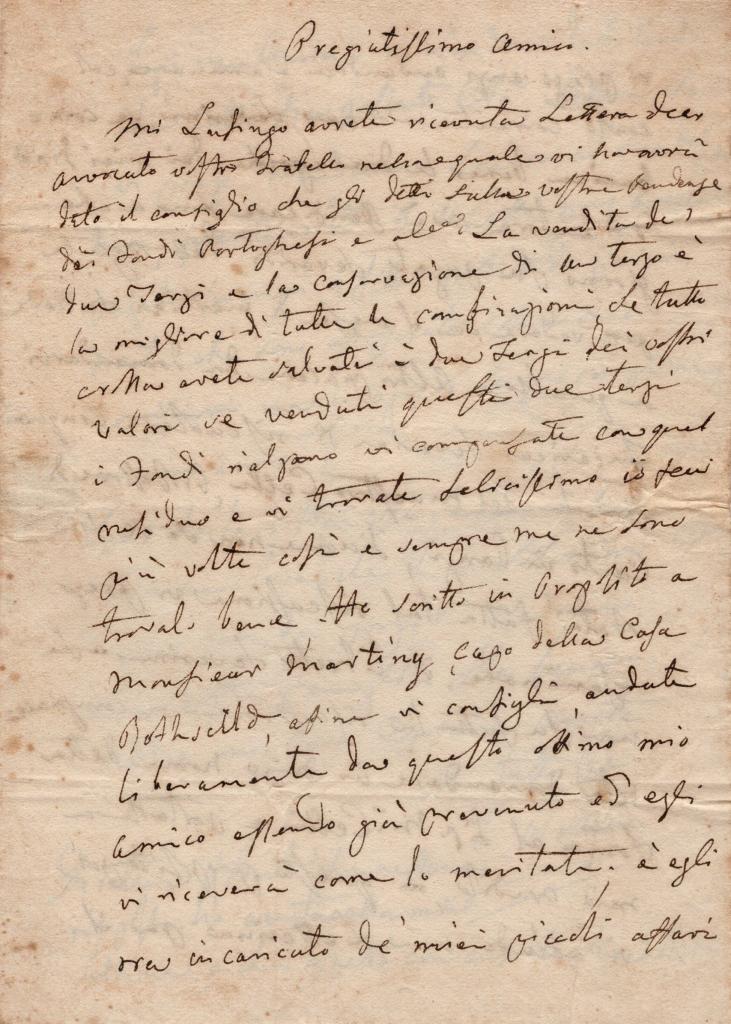 Pregiatissimo Amico.
Mi Lusingo avrete ricevuta Lettera
avvocato vostro Fratello nella quale vi havavrà
dato il consiglio che gli detti sulla vostra
dei Fondi Portoghesi e La vendita de
due Terzi e la conservazione di un terzo è
la migliore di tutte le Se tutto
crolla avete salvati i due Terzi dei vostri
valori se venduti questi due terzi
i Fondi rialzano vi compensate con quel
residuo e vi trovate felicissimo io feci
più volte così e sempre me ne sono
trovato bene. Ho scritto in Proposito a
Monsieur Martiny, Capo della Casa
Rothscilld, afine vi consigli, andate
liberamente da questo ottimo mio
amico essendo già prevenuto ed egli
vi riceverà come lo meritate; è egli
ora incaricato de' miei piccoli affari